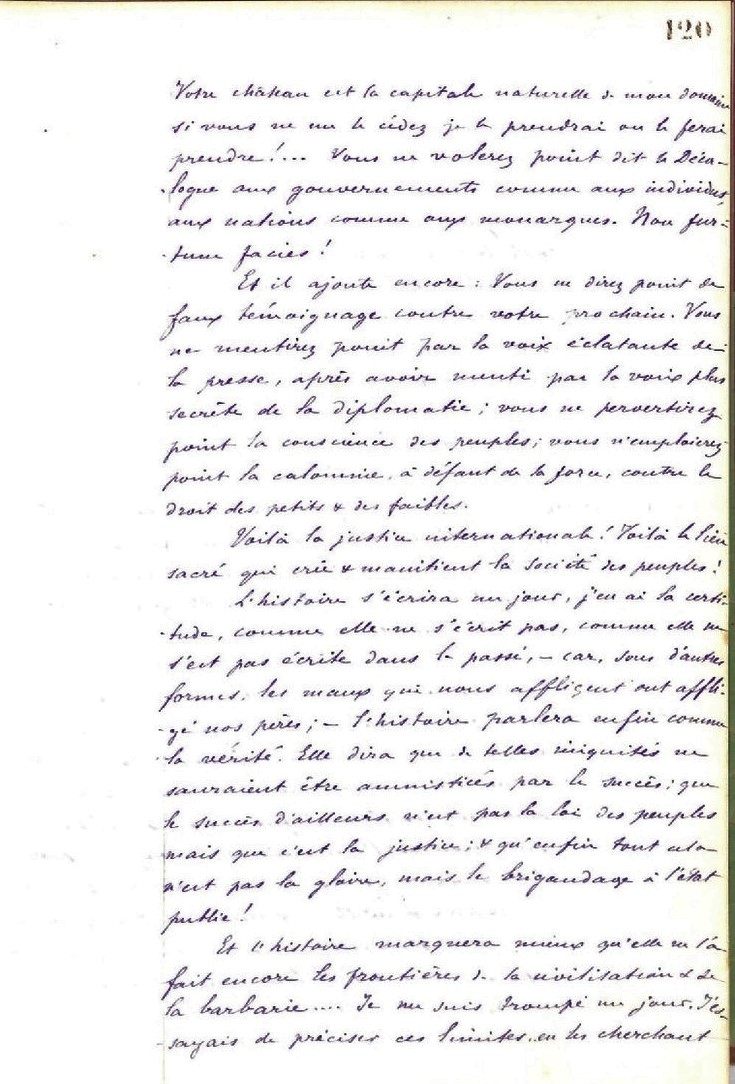 120
Votre château est la capitale naturelle de mon domaine
si vous ne me le cédez je le prendrai ou le ferai
prendre !... Vous ne volerez point dit le Déca-
logue aux gouvernements comme aux individus,
aux nations comme aux monarques. Non fur-
tum facies !
Et il ajoute encore : Vous ne direz point de
faux témoignage contre votre prochain. Vous
ne mentirez point par la voix éclatante de
la presse, après avoir menti par la voix plus
secrète de la diplomatie ; vous ne pervertirez
point la conscience des peuples ; vous n'emploierez
point la calomnie, à défaut de la force, contre le
droit des petits & des faibles.
Voilà la justice internationale ! Voilà le lien
sacré qui crée & maintient la société des peuples !
L'histoire s'écrira un jour, j'en ai la certi-
tude, comme elle ne s'écrit pas, comme elle ne
s'est pas écrite dans le passé, – car, sous d'autres
formes, les maux qui nous affligent ont affli-
gé nos pères ; – l'histoire parlera enfin comme
la vérité. Elle dira que de telles iniquités ne
sauraient être amnistiées par le succès ; que
le succès d'ailleurs n'est pas la loi des peuples
mais que c'est la justice ; & qu'enfin tout cela
n'est pas la gloire, mais le brigandage à l'état
public !
Et l'histoire marquera mieux qu'elle ne l'a
fait encore les frontières de la civilisation & de
la barbarie.... Je me suis trompé un jour. J'es-
sayais de préciser ces limites en les cherchant